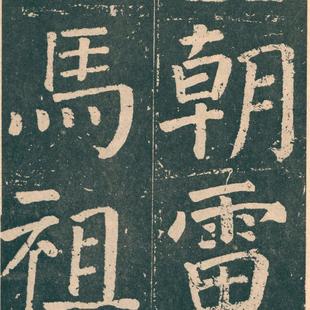 朝雷
馬祖